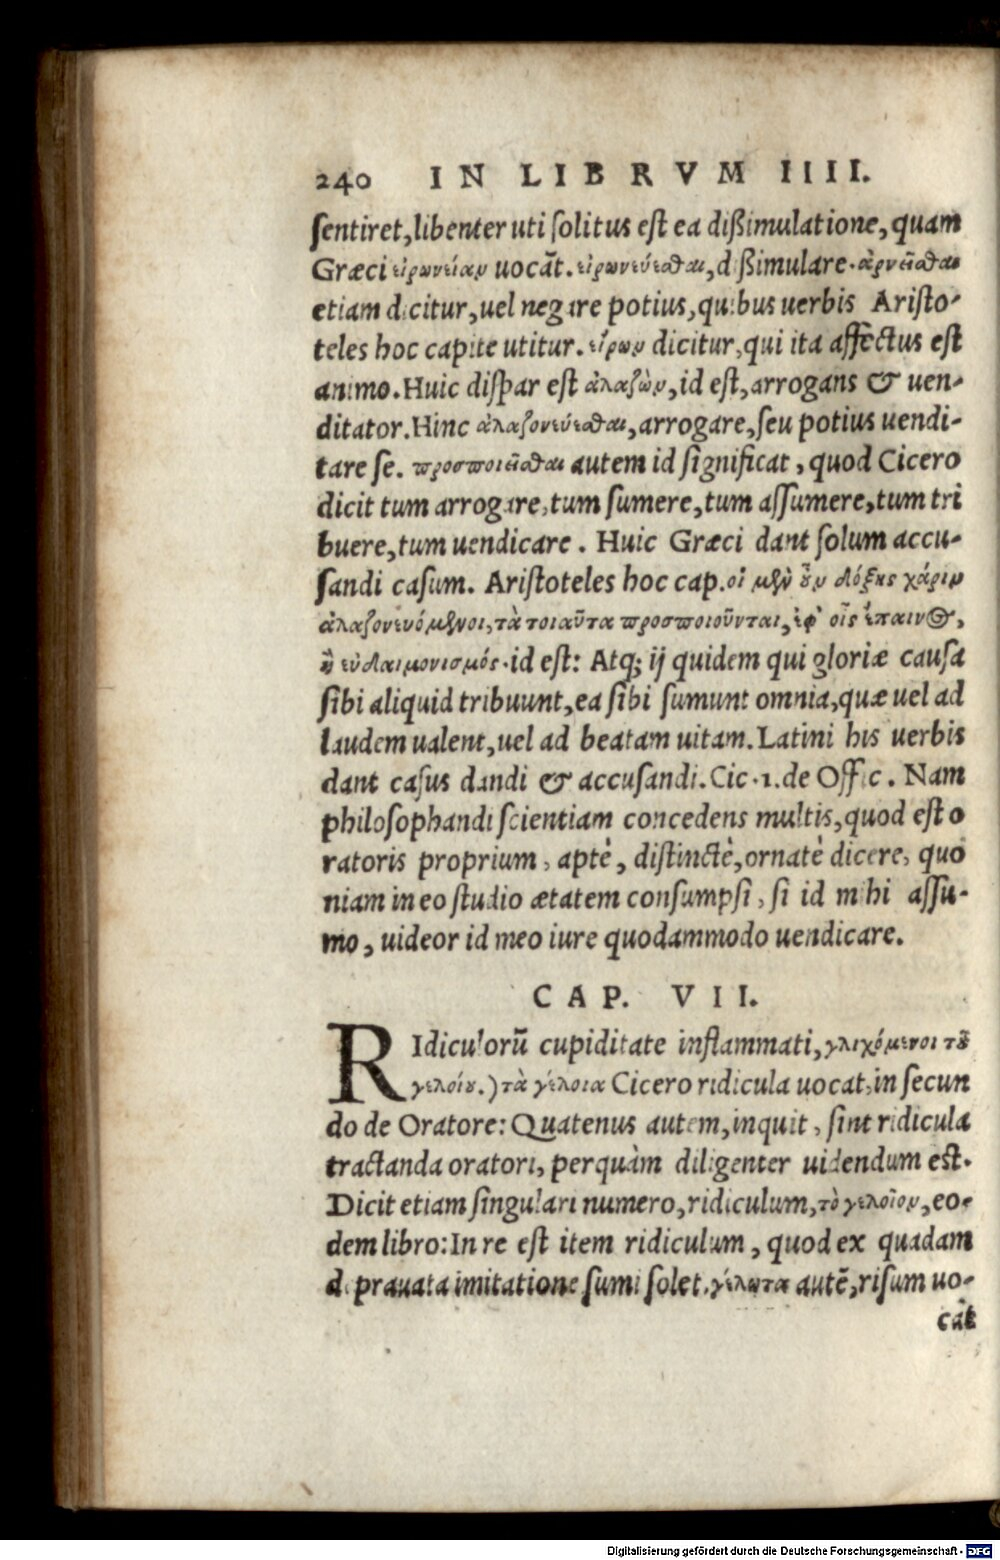 240 IN LIBRVM IIII.
sentiret, libenter uti solitus est ea dißimulatione, quam
Græci εἰρωνείαν uocāt. εἰρωνεύεσθαι, dißimulare. ἀρνεῖσθαι
etiam dicitur, uel negare potius, quibus uerbis Aristo-
teles hoc capite utitur. εἴρων dicitur, qui ita affectus est
animo. Huic dispar est ἀλαζὼν, id est, arrogans & uen-
ditator. Hinc ἀλαζονεύεσθαι, arrogare, seu potius uendi-
tare se. προσποιεῖσθαι autem id significat, quod Cicero
dicit tum arrogare, tum sumere, tum assumere, tum tri
buere, tum uendicare. Huic Græci dant solum accu-
sandi casum. Aristoteles hoc cap. οἱ μὲν οὖν δόξης χάριν
ἀλαζονευόμενοι, τὰ τοιαῦτα προσποιοῦνται, ἐφ' οἷς ἔπαινος,
ἢ εὐδαιμονισμός. id est: Atq; ij quidem qui gloriæ causa
sibi aliquid tribuunt, ea sibi sumunt omnia, quæ uel ad
laudem ualent, uel ad beatam uitam. Latini his uerbis
dant casus dandi & accusandi. Cic. 1. de Offic. Nam
philosophandi scientiam concedens multis, quod est o
ratoris proprium, aptè, distinctè, ornatè dicere, quo
niam in eo studio ætatem consumpsi, si id mihi assu-
mo, uideor id meo iure quodammodo uendicare.
CAP. VII.
RIdiculorū cupiditate inflammati, γλιχόμενοι τοῦ
γελοίου.) τὰ γέλοια Cicero ridicula uocat, in secun
do de Oratore: Quatenus autem, inquit, sint ridicula
tractanda oratori, perquàm diligenter uidendum est.
Dicit etiam singulari numero, ridiculum, τὸ γελοῖον, eo-
dem libro: In re est item ridiculum, quod ex quadam
deprauata imitatione sumi solet. γέλωτα autē, risum uo-
cāt
Digitalisierung gefördert durch die Deutsche Forschungsgemeinschaft - DFG